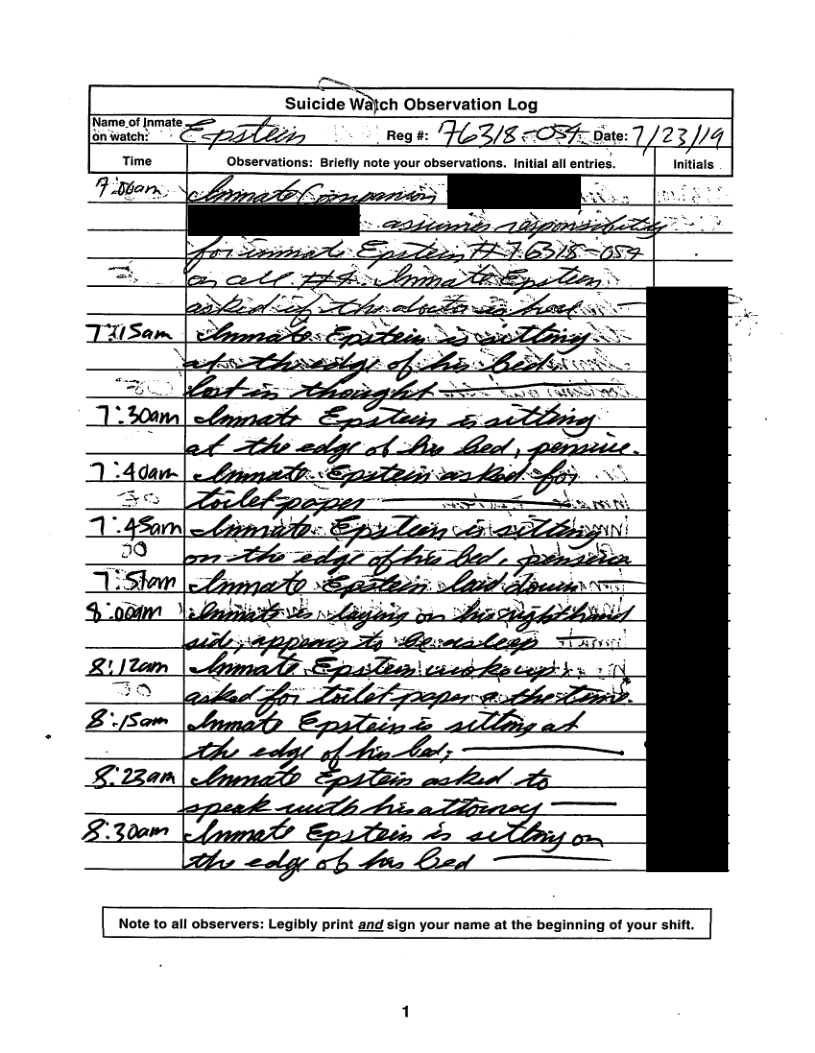 Suicide Watch Observation Log
Name of Inmate on watch: Epstein Reg #: 76318-054 Date: 7/23/19
Time Observations: Briefly note your observations. Initial all entries. Initials
7:06am Inmate Companion
assumes responsibility
for inmate Epstein # 76318-054
on cell #4. Inmate Epstein
asked if the doctor is here
7:15am Inmate Epstein is sitting
at the edge of his bed
lost in thought
7:30am Inmate Epstein is sitting
at the edge of his bed, pensive.
7:40am Inmate Epstein asked for
toilet-paper
7:45am Inmate Epstein is sitting
on the edge of his bed,
7:57am Inmate Epstein laid down
8:00am Inmate is laying on his right hand
side, appears to be asleep
8:12am Inmate Epstein woke up
asked for toilet-paper a the time.
8:15am Inmate Epstein is sitting at
the edge of his bed;
8:23am Inmate Epstein asked to
speak with his attorney
8:30am Inmate Epstein is sitting on
the edge of his bed
Note to all observers: Legibly print and sign your name at the beginning of your shift.
1